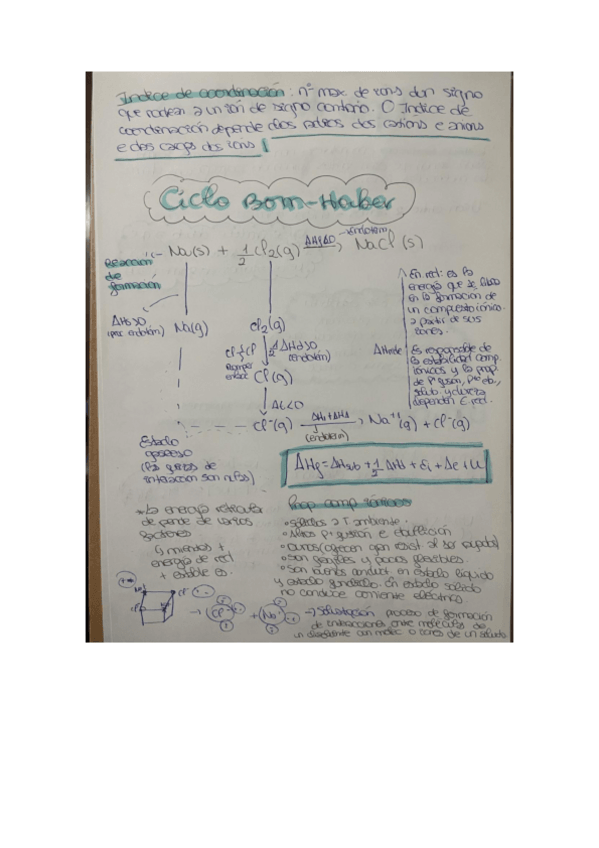 Indice de coordinación: nº max. de ions dun signo
que rodean a un ión de signo contrario. O Indice de
coordinación depende dos radios dos cations e anions
e das cargas dos ions
Ciclo Born-Haber
Reacción
de
formación
Na(s) + 1/2 Cl₂(g) → NaCl(s)
ΔHs>0
(proc. endotérm)
Na(g)
Cl₂(g)
ΔHd>0
(endotérm)
Romper
enlace
Cl(g)
ΔE<0
Cl⁻(g)
(endoterm)
Na⁺(g) + Cl⁻(g)
En. red: es la
energía que se libera
en la formación de
un compuesto iónico
a partir de sus
iones.
Es responsable de
la estabilidad comp.
iónicos y las prop.
de Pº fusión, Ptº eb.,
solub. y dureza
dependen E. red.
Estado
gaseoso
(las fuerzas de
interacción son nulas)
ΔHf = ΔHsub + 1/2 ΔHd + Ei + ΔE + U
La energía reticular
depende de varios
factores
energía de red
+ estable es.
Prop comp iónicos
• sólidos a T ambiente.
• Altos Pº fusión e ebullición
• Duros (ofrecen gran resist. al ser rayados)
• son frágiles y pocos flexibles.
• son buenos conduct. en estado líquido
y estado fundido. En estado sólido
no conduce corriente eléctrica.
→ Solvatación proceso de formación
de interacciones entre moléculas de
un disolvente con moléc o iones de un soluto.
Cl⁻
+
Na⁺